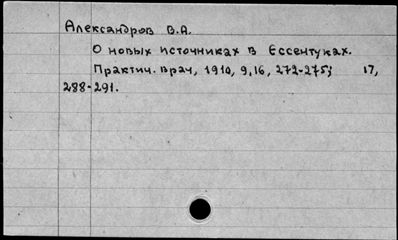 Александров В.А.
О новых источниках в Ессентуках.
Практич. врач, 1910, 9,16, 272-275; 17,
288-291.